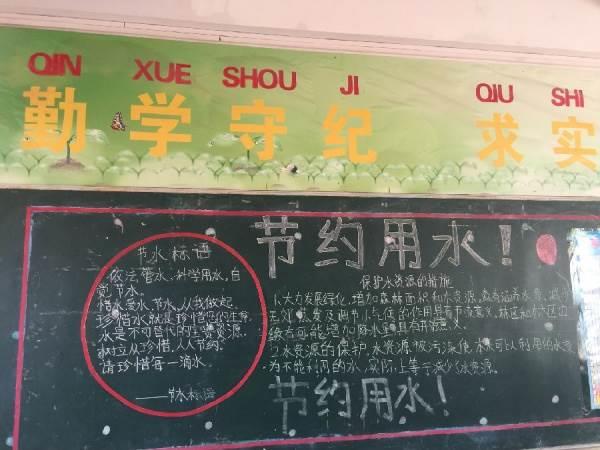 QIN XUE SHOU JI QIU SHI
勤学守纪 求实
节约用水!
节水标语
依法管水,科学用水,自
觉节水。
惜水爱水、节水,从我做起。
珍惜水就是珍惜您的生命
水是不可替代的生资源
树立从珍惜,人人节约
请珍惜每一滴水。
——节水标语
保护水资源的措施
1.大力发展绿化,增加森林面积和水资源,森有涵养水费,减少
无效及调节小气候的作用具有节流意义,林区和林区边
缘有可能增加降水到具有开源意义。
2.水资源的保护,水资源被污染使水从可以利用的水变
为不能利用的水,实际上等于减少了水资源。
节约用水!